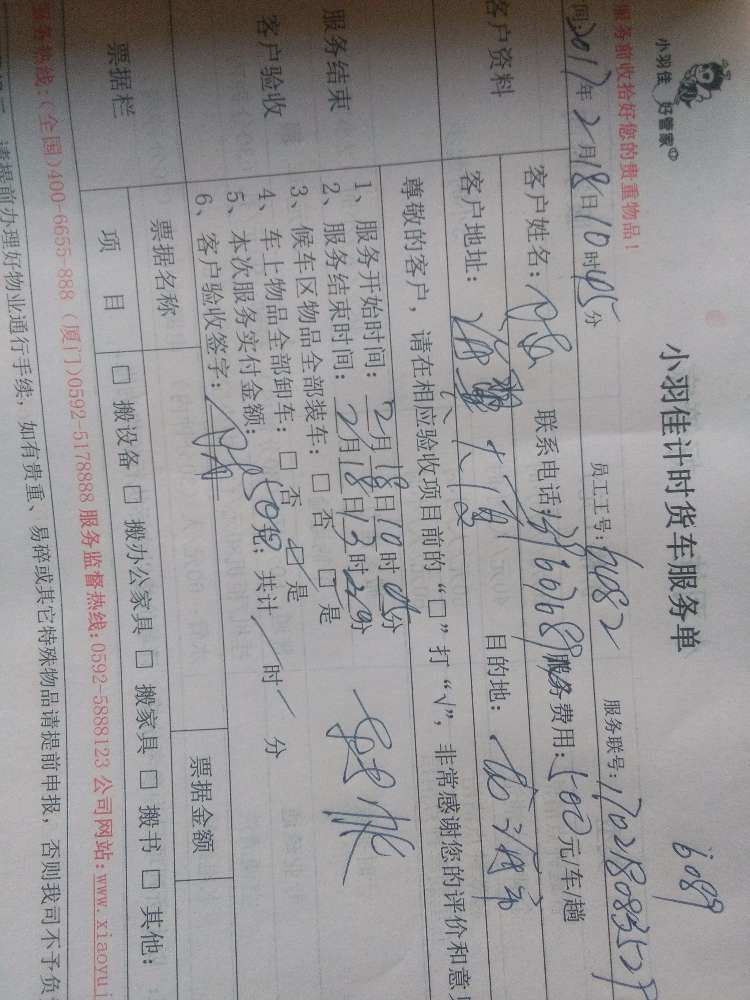 小羽佳 好管家
6089
小羽佳计时货车服务单
服务前收拾好您的贵重物品！
间:2017年2月18日10时45分 员工工号:6082 服务联号:
客户资料
客户姓名: 联系电话: 服务费用:500元/车/趟
客户地址: 目的地:
尊敬的客户，请在相应验收项目前的“□”打“√”，非常感谢您的评价和意
服务结束
客户验收
1、服务开始时间: 2月18日10时 分
2、服务结束时间: 2月18日13时20分
3、候车区物品全部装车: □ 否 □ 是
4、车上物品全部卸车: □ 否 □ 是
5、本次服务实付金额: 500元; 共计 / 时 / 分
6、客户验收签字:
票据栏
票据名称 票据金额
项 目 □ 搬设备 □ 搬办公家具 □ 搬家具 □ 搬书 □ 其他:
服务热线:(全国)400-6655-888 (厦门)0592-5178888 服务监督热线:0592-5888123 公司网站:www.xiaoyuj
请提前办理好物业通行手续，如有贵重、易碎或其它特殊物品请提前申报，否则我司不予负